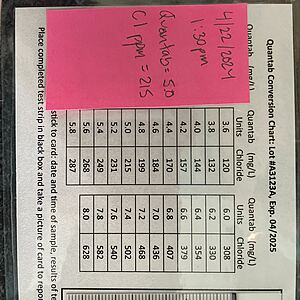 Quantab Conversion Chart: Lot #A3123A, Exp. 04/2025
Quantab (mg/L) Quantab (mg/L) Quantab (mg/L)
Units Chloride Units Chloride
3.6 120 6.0 308
3.8 132 6.2 330
4.0 144 6.4 354
4.2 157 6.6 379
4.4 170 6.8 407
4.6 184 7.0 436
4.8 199 7.2 468
5.0 215 7.4 502
5.2 231 7.6 540
5.4 249 7.8 582
5.6 268 8.0 628
5.8 287
4/22/2024
1:30pm
Quantab=5.0
Cl ppm = 215
stick to card: date and time of sample, results of
Place completed test strip in black box and take a picture of card to